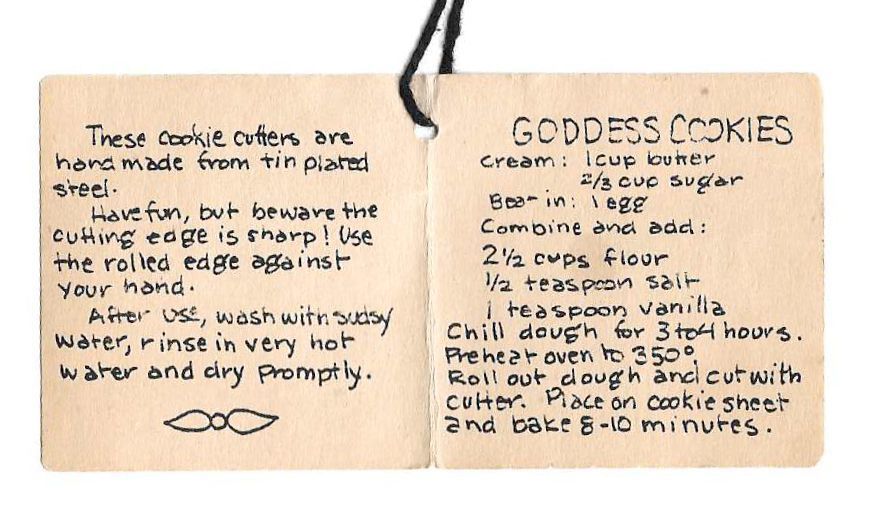 These cookie cutters are
hand made from tin plated
steel.
Have fun, but beware the
cutting edge is sharp! Use
the rolled edge against
your hand.
After use, wash with sudsy
water, rinse in very hot
water and dry promptly.
GODDESS COOKIES
Cream: 1 cup butter
2/3 cup sugar
Beat in: 1 egg
Combine and add:
2 1/2 cups flour
1/2 teaspoon salt
1 teaspoon vanilla
Chill dough for 3 to 4 hours.
Preheat oven to 350°.
Roll out dough and cut with
cutter. Place on cookie sheet
and bake 8-10 minutes.